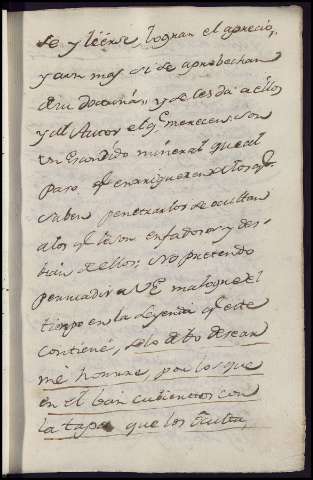 se y leerse, logran el aprecio,
y aun mas si se aprobechan
de su doctrina, y se les da a ellos
y al Autor el q.e merecen; son
un Escondido mineral que al
paso q.e enriqueze a los q.e
saben penetrarlos se ocultan
a los q.e le son enfadosos y des-
bian de ellos; No pretendo
persuadir a VE malogre el
tiempo en la Leyenda q.e este
contiene, solo debo desear
me honrre, por los que
en el ban cubiertos con
la tapa que los oculta,